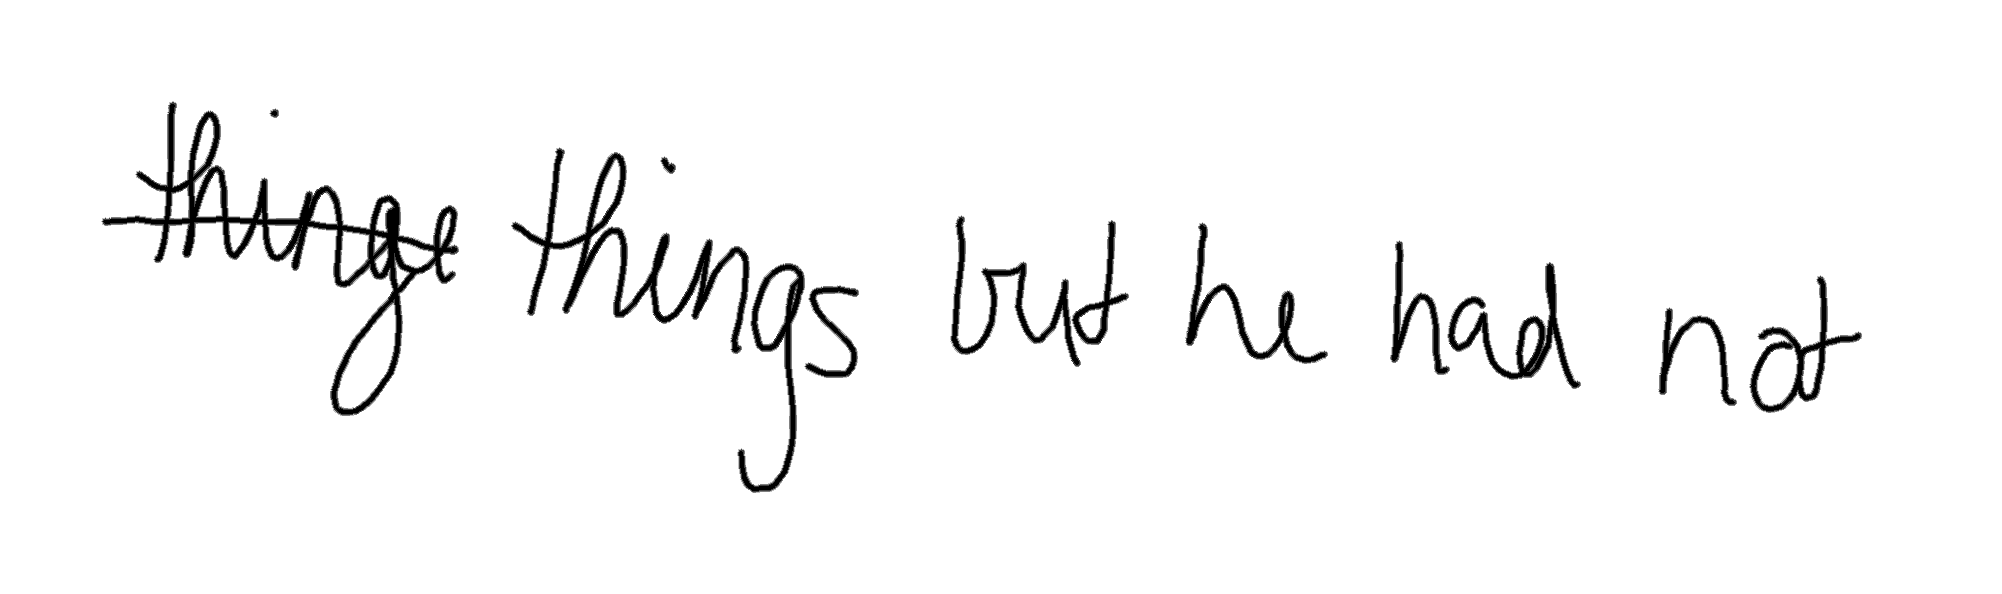 thinge things but he had not